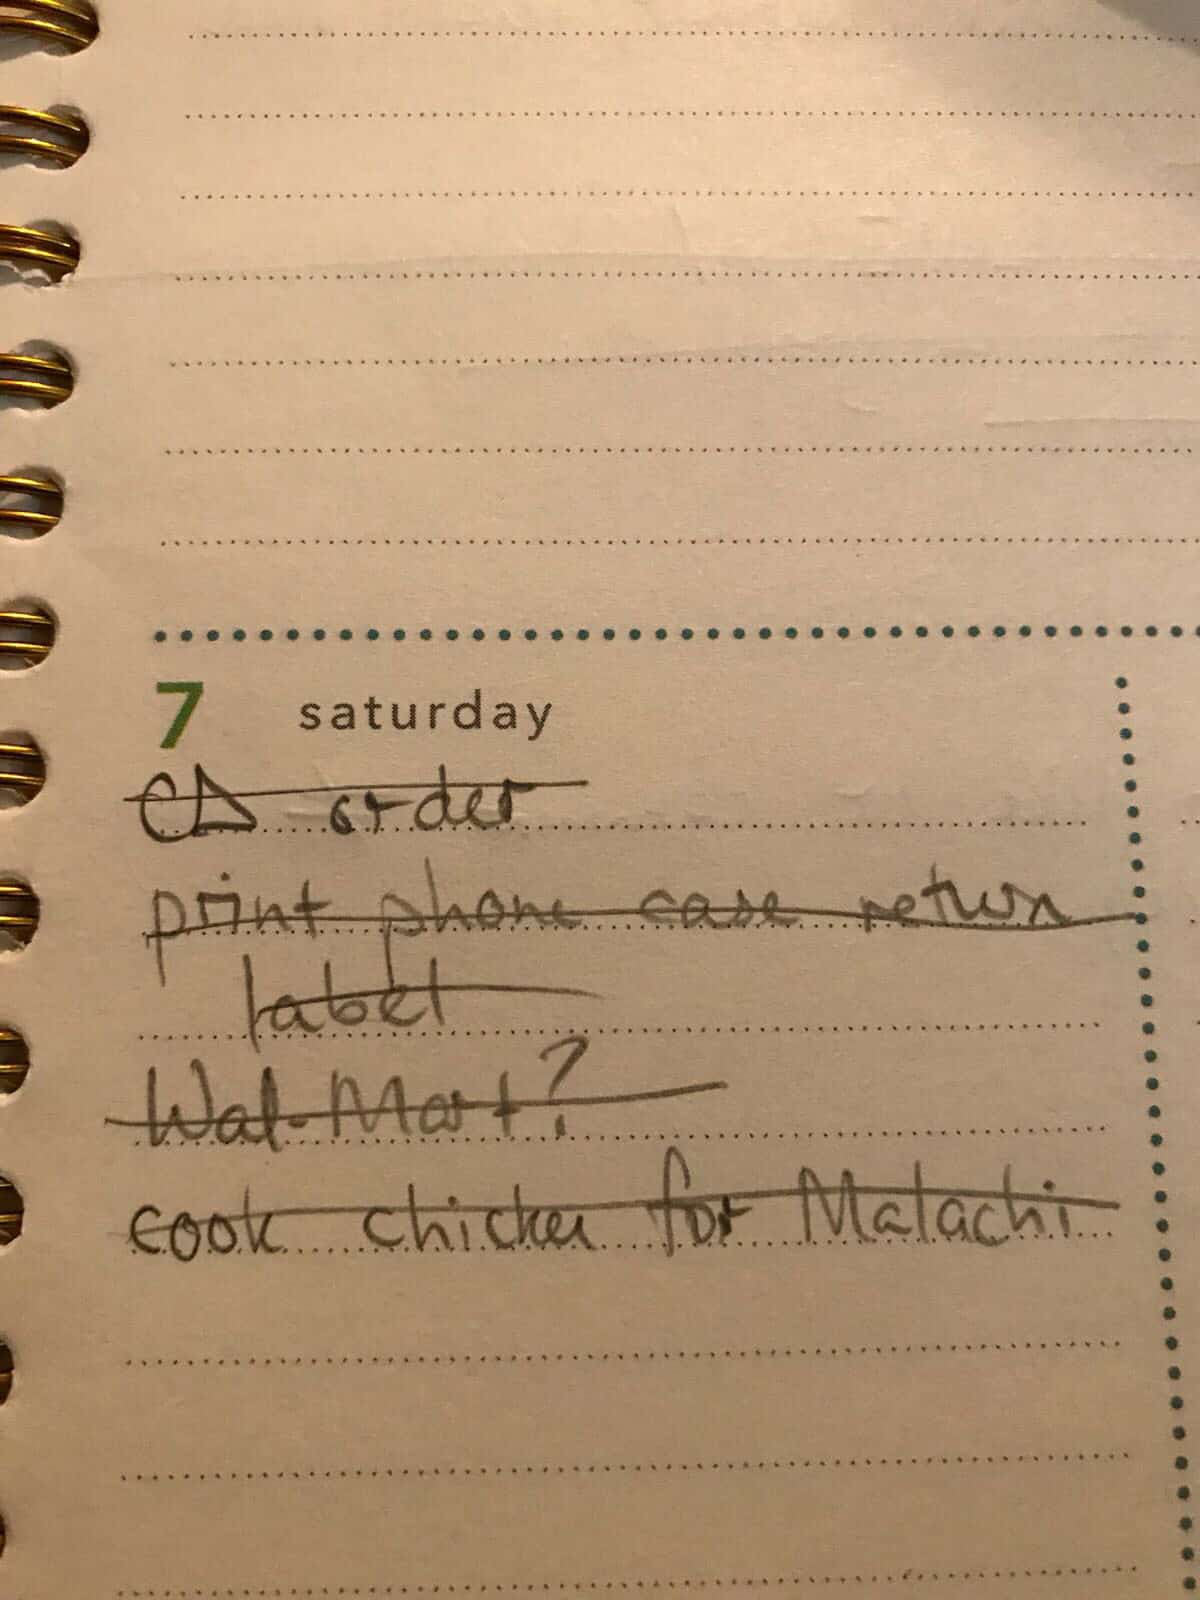 7 saturday
order
print phone case return
label
Wal-Mart?
cook chicken for Malachi